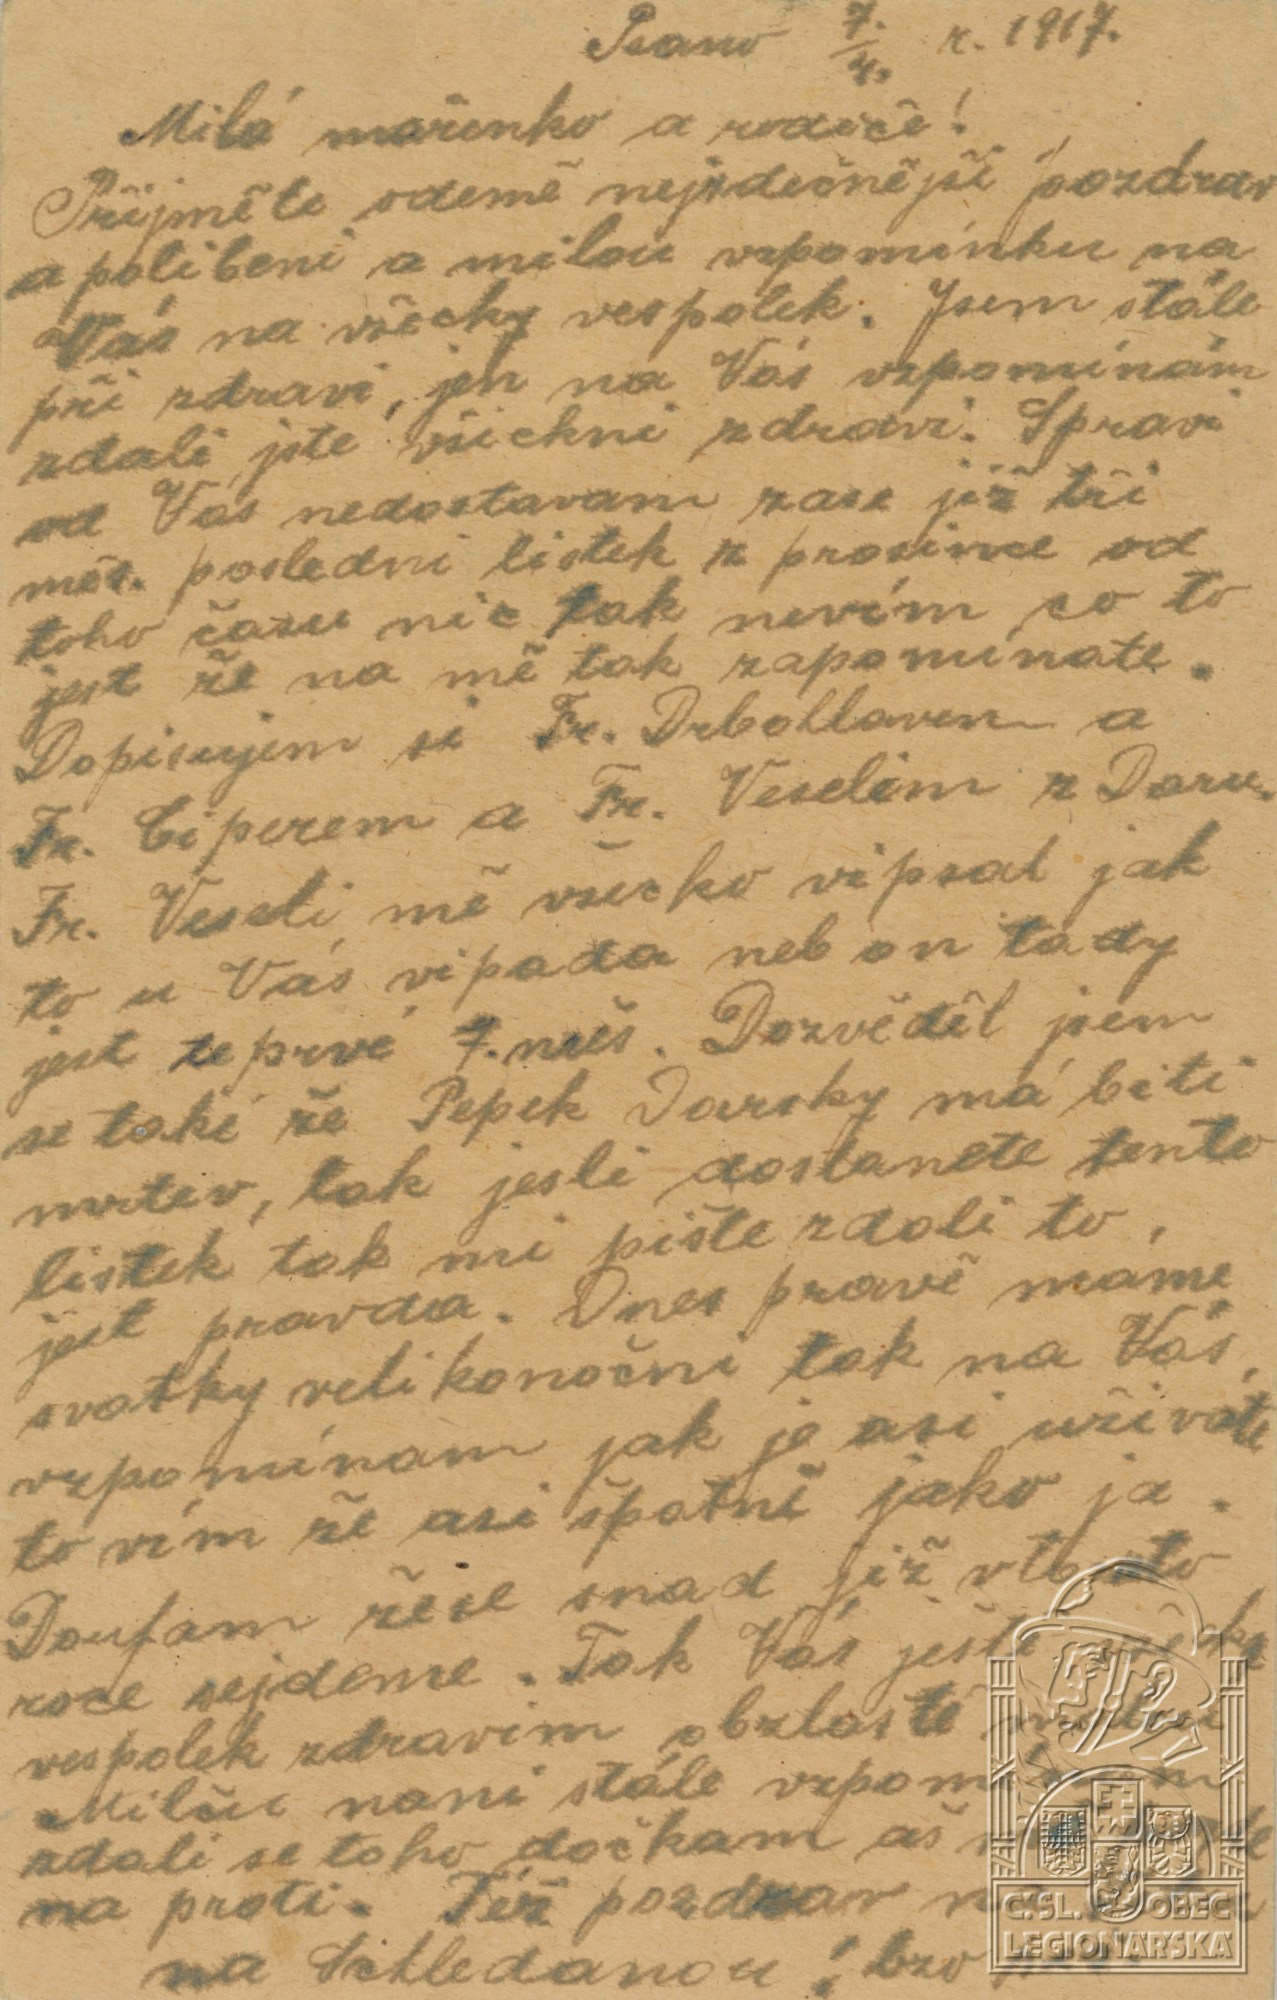 Psano 7./4. r. 1917.
Milá mařenko a rodiče!
Přijměte odemě nejsdečnější pozdrav
a polibeni a milou vzpomínku na
Vás na všecky vespolek. Jsem stále
při zdravi, jen na Vás vzpomínám
zdali jste všickni zdravi. Spravi
od Vás nedostavam zase již tři
měs. posledni listek z prosince od
toho času nic tak nevím co to
jest že na mě tak zapomínate.
Dopisujem si Fr. Drbohlavem a
Fr. Ciperem a Fr. Veselim z Daru.
Fr. Veseli mě všecko vipsal jak
to u Vás vipada neb on tady
jest teprvé 7. měs. Dozvěděl jsem
se taki že Pepek Darsky má biti
mrtev, tak jesli dostanete tento
listek tak mi pište zdali to
jest pravda. Dnes pravě mame
svatky velikonočni tak na Vás
vzpomínam jak je asi uživáte
to vím že asi špatně jako ja.
Doufam žese snad již vtomto
roce sejdeme. Tak Vás ještě všecky
vespolek zdravim obzlastě
Milču nani stále vzpomínam
zdali se toho dočkam aš
na proti. Též pozdrav
na Schledanou! brzo
Č.SL. OBEC
LEGIONÁŘSKÁ